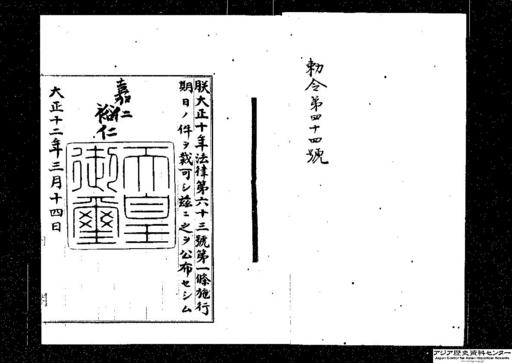 勅令第四十四號
朕大正十年法律第六十三號第一條施行
期日ノ件ヲ裁可シ茲ニ之ヲ公布セシム
嘉仁
裕仁
天皇
御璽
大正十二年三月十四日
アジア歴史資料センター
Japan Center for Asian Historical Records